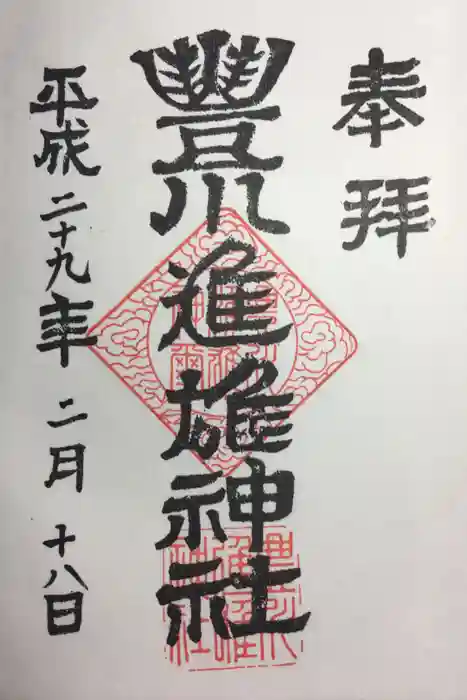 奉拜
豐川進雄神社
平成二十九年二月十八日